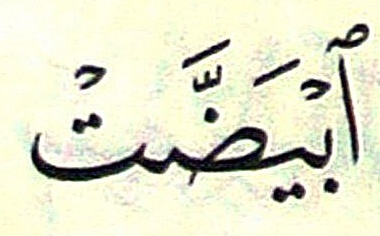 ٱبْيَضَّتْ